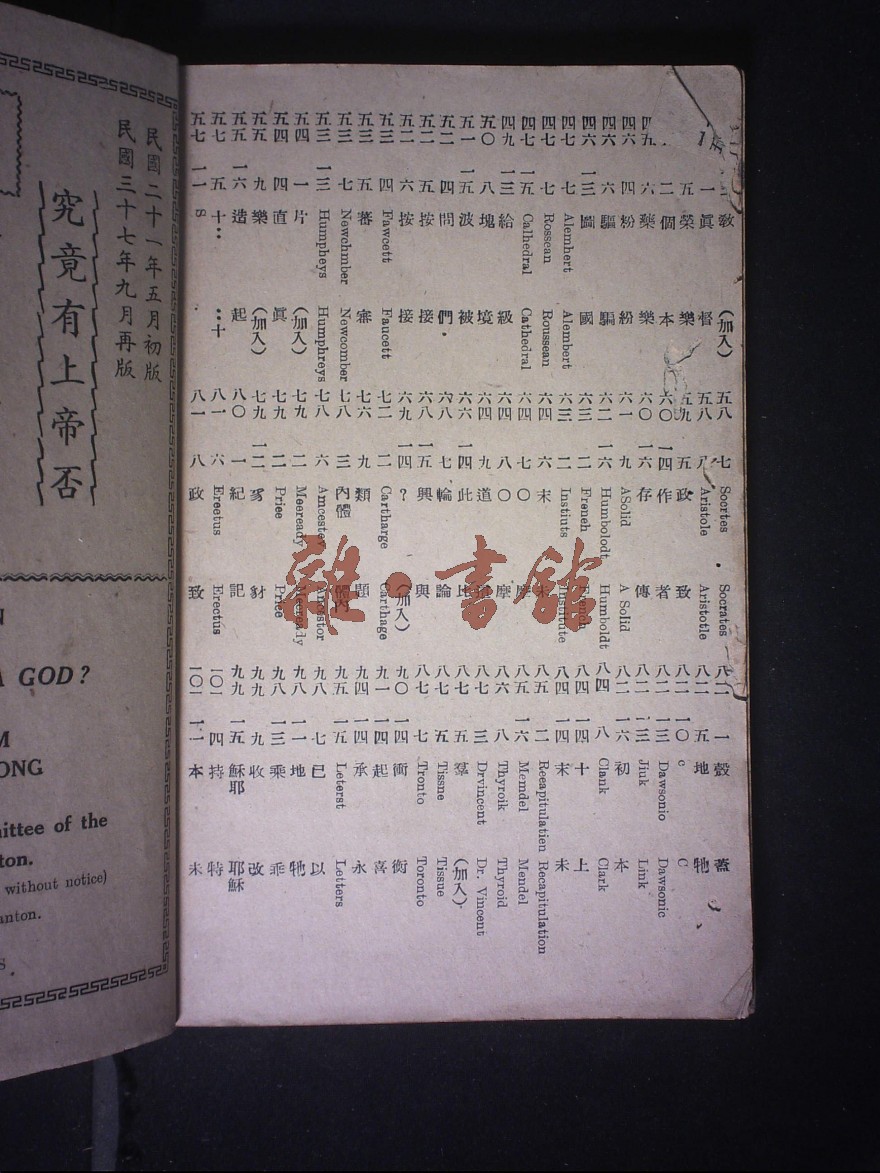 敎 (加入)
一 眞 督
五 榮 樂
二 個 本
六 藥 樂
四六 四 粉 紛
四六 四 驅 騙
四六 一三 圖 國
四七 七 Alemhert Alembert
四七 七 Rosscan Roussean
四七 一五 Calhedral Cathedral
四九 一三 給 級
五〇 八 塊 境
五一 一五 波 被
五二 四 問 們
五二 五 按 接
五二 六 按 接
五三 Fawcett Faucett
五三 五 蕃 審
五三 七 Newchmber Newcomber
五三 一三 Humpheys Humphreys
五四 一 片 (加入)
五四 四 直 眞
五五 九 樂 (加入)
五五 一六 造 起
五七 五 十‥ ‥十
五七 一一 s .
五八 七 Soortes Socrates
五八 八 Aristole Aristotle
五九 五 政 致
六〇 一四 作 者
六〇 六 存 傳
六一 九 ASolid A Solid
六二 一六 Humbolodt Humboldt
六三 二 Freneh French
六三 二 Instiuts Insutute
六四 六 末 未
六四 七 〇 摩
六四 八 〇 摩
六四 九 道
六六 一四 此 比
六八 七 輪 論
六八 一五 興 與
六九 一四 ? (加入)
七二 二 Cartharge Carthage
七六 九 類 題
七八 三 內體 體內
七八 六 Amcestey Ancestor
七九 二 Meeready Mceready
七九 二 Priee Price
七九 一二 豸 豺
八〇 一 紀 記
八一 六 Ereetus Erectus
八一 八 政 致
八二 一 殼 蓋
八二 五 地 牠
八二 一〇 c C
八二 一三 Dawsonio Dawsonic
八二 一三 Jiuk Link
八二 一六 初 本
八四 八 Clank Clark
八四 一四 十 上
八四 一四 末 未
八五 二 Reeapitulatien Recapitulation
八五 一六 Memdel Mendel
八六 八 Thyroik Thyroid
八七 三 Drvincent Dr. Vincent
八七 五 羣 (加入)
八七 五 Tissne Tissue
八七 七 Tronto Toronto
九〇 一四 衝 衡
九一 一四 起 喜
九四 一四 承 永
九五 一五 Leterst Letters
九八 七 已 以
九八 一一 地 牠
九八 一三 乘 乖
九九 九 收 改
九九 一五 穌耶 耶穌
一〇一 四 持 特
一〇一 一一 本 未
民國二十一年五月初版
民國三十七年九月再版
究竟有上帝否
A GOD?
ONG
ittee of the
ton.
without notice)
anton.
雜·書館